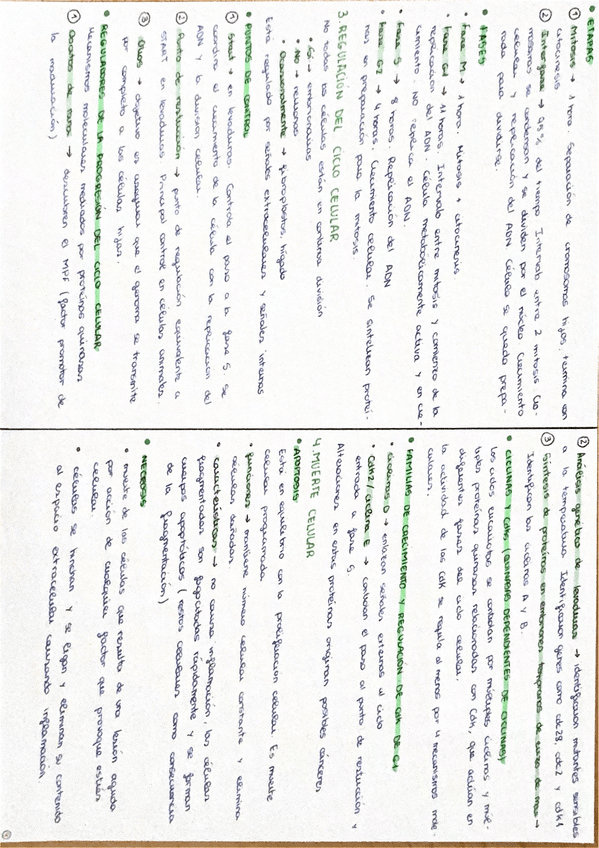 • ETAPAS
① Mitosis → 1 hora. Separación de cromosomas hijos, termina en
citocinesis
② Interfase → 95% del tiempo. Intervalo entre 2 mitosis. Cro-
mosomas se condensan y se dividen por el núcleo. Crecimiento
celular y replicación del ADN. Célula se queda prepa-
rada para dividirse.
• FASES
• Fase M → 1 hora. Mitosis + citocinesis.
• Fase G1 → 11 horas. Intervalo entre mitosis y comienzo de la
replicación del ADN. Célula metabólicamente activa y en cre-
cimiento. No replica el ADN.
• Fase S → 8 horas. Replicación del ADN
• Fase G2 → 4 horas. Crecimiento celular. Se sintetizan proteí-
nas en preparación para la mitosis.
3. REGULACIÓN DEL CICLO CELULAR
No todas las células están en continua división
• Sí → embrionarias
• No → neuronas
• Ocasionalmente → fibroblastos, hígado
Está regulado por señales extracelulares y señales internas
• PUNTOS DE CONTROL
① Start → en levaduras. Controla el paso a la fase S. Se
coordina el crecimiento de la célula con la replicación del
ADN y la división celular.
② Punto de restricción → punto de regulación equivalente a
START en levaduras. Principal control en células animales.
③ Otros → objetivo es asegurar que el genoma se transmite
por completo a las células hijas.
• REGULADORES DE LA PROGRESIÓN DEL CICLO CELULAR
Mecanismos moleculares mediados por proteínas quinasas
① Oocitos de rana → descubren el MPF (factor promotor de
la maduración)
② Análisis genético de levaduras → identificaron mutantes sensibles
a la temperatura. Identificaron genes como cdc28, cdc2 y cdk1
③ Síntesis de proteínas en embriones tempranos de erizo de mar →
Identifican las ciclinas A y B.
• CICLINAS Y Cdks (QUINASAS DEPENDIENTES DE CICLINAS)
Los ciclos eucariotas se controlan por múltiples ciclinas y múl-
tiples proteínas quinasas relacionadas con Cdk1, que actúan en
diferentes fases del ciclo celular.
La actividad de las Cdk se regula al menos por 4 mecanismos mole-
culares.
• FAMILIAS DE CRECIMIENTO Y REGULACIÓN DE CdK DE G1
• Ciclinas D → enlazan señales externas al ciclo
• Cdk2/ciclina E → controlan el paso al punto de restricción y
entrada a fase S.
Alteraciones en estas proteínas originan posibles cánceres
4. MUERTE CELULAR
• APOPTOSIS
Está en equilibrio con la proliferación celular. Es muerte
celular programada.
• Funciones → mantiene número celular constante y elimina
células dañadas.
• características → no causa inflamación, las células
fragmentadas son fagocitadas rápidamente y se forman
cuerpos apoptóticos (restos celulares como consecuencia
de la fragmentación)
• NECROSIS
• muerte de las células que resulta de una lesión aguda
por acción de cualquier factor que provoque estrés
celular.
• células se hinchan y se ligan y eliminan su contenido
al espacio extracelular causando inflamación.